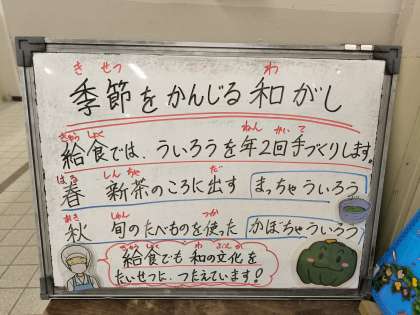 きせつ わ
季節をかんじる和がし
きゅうしょく ねん かい て
給食では、ういろうを年2回手づくりします。
はる しんちゃ だ
春 新茶のころに出す まっちゃういろう
あき しゅん つか
秋 旬のたべものを使った かぼちゃういろう
きゅうしょく わ ぶんか
給食でも和の文化を
たいせつに、つたえています!